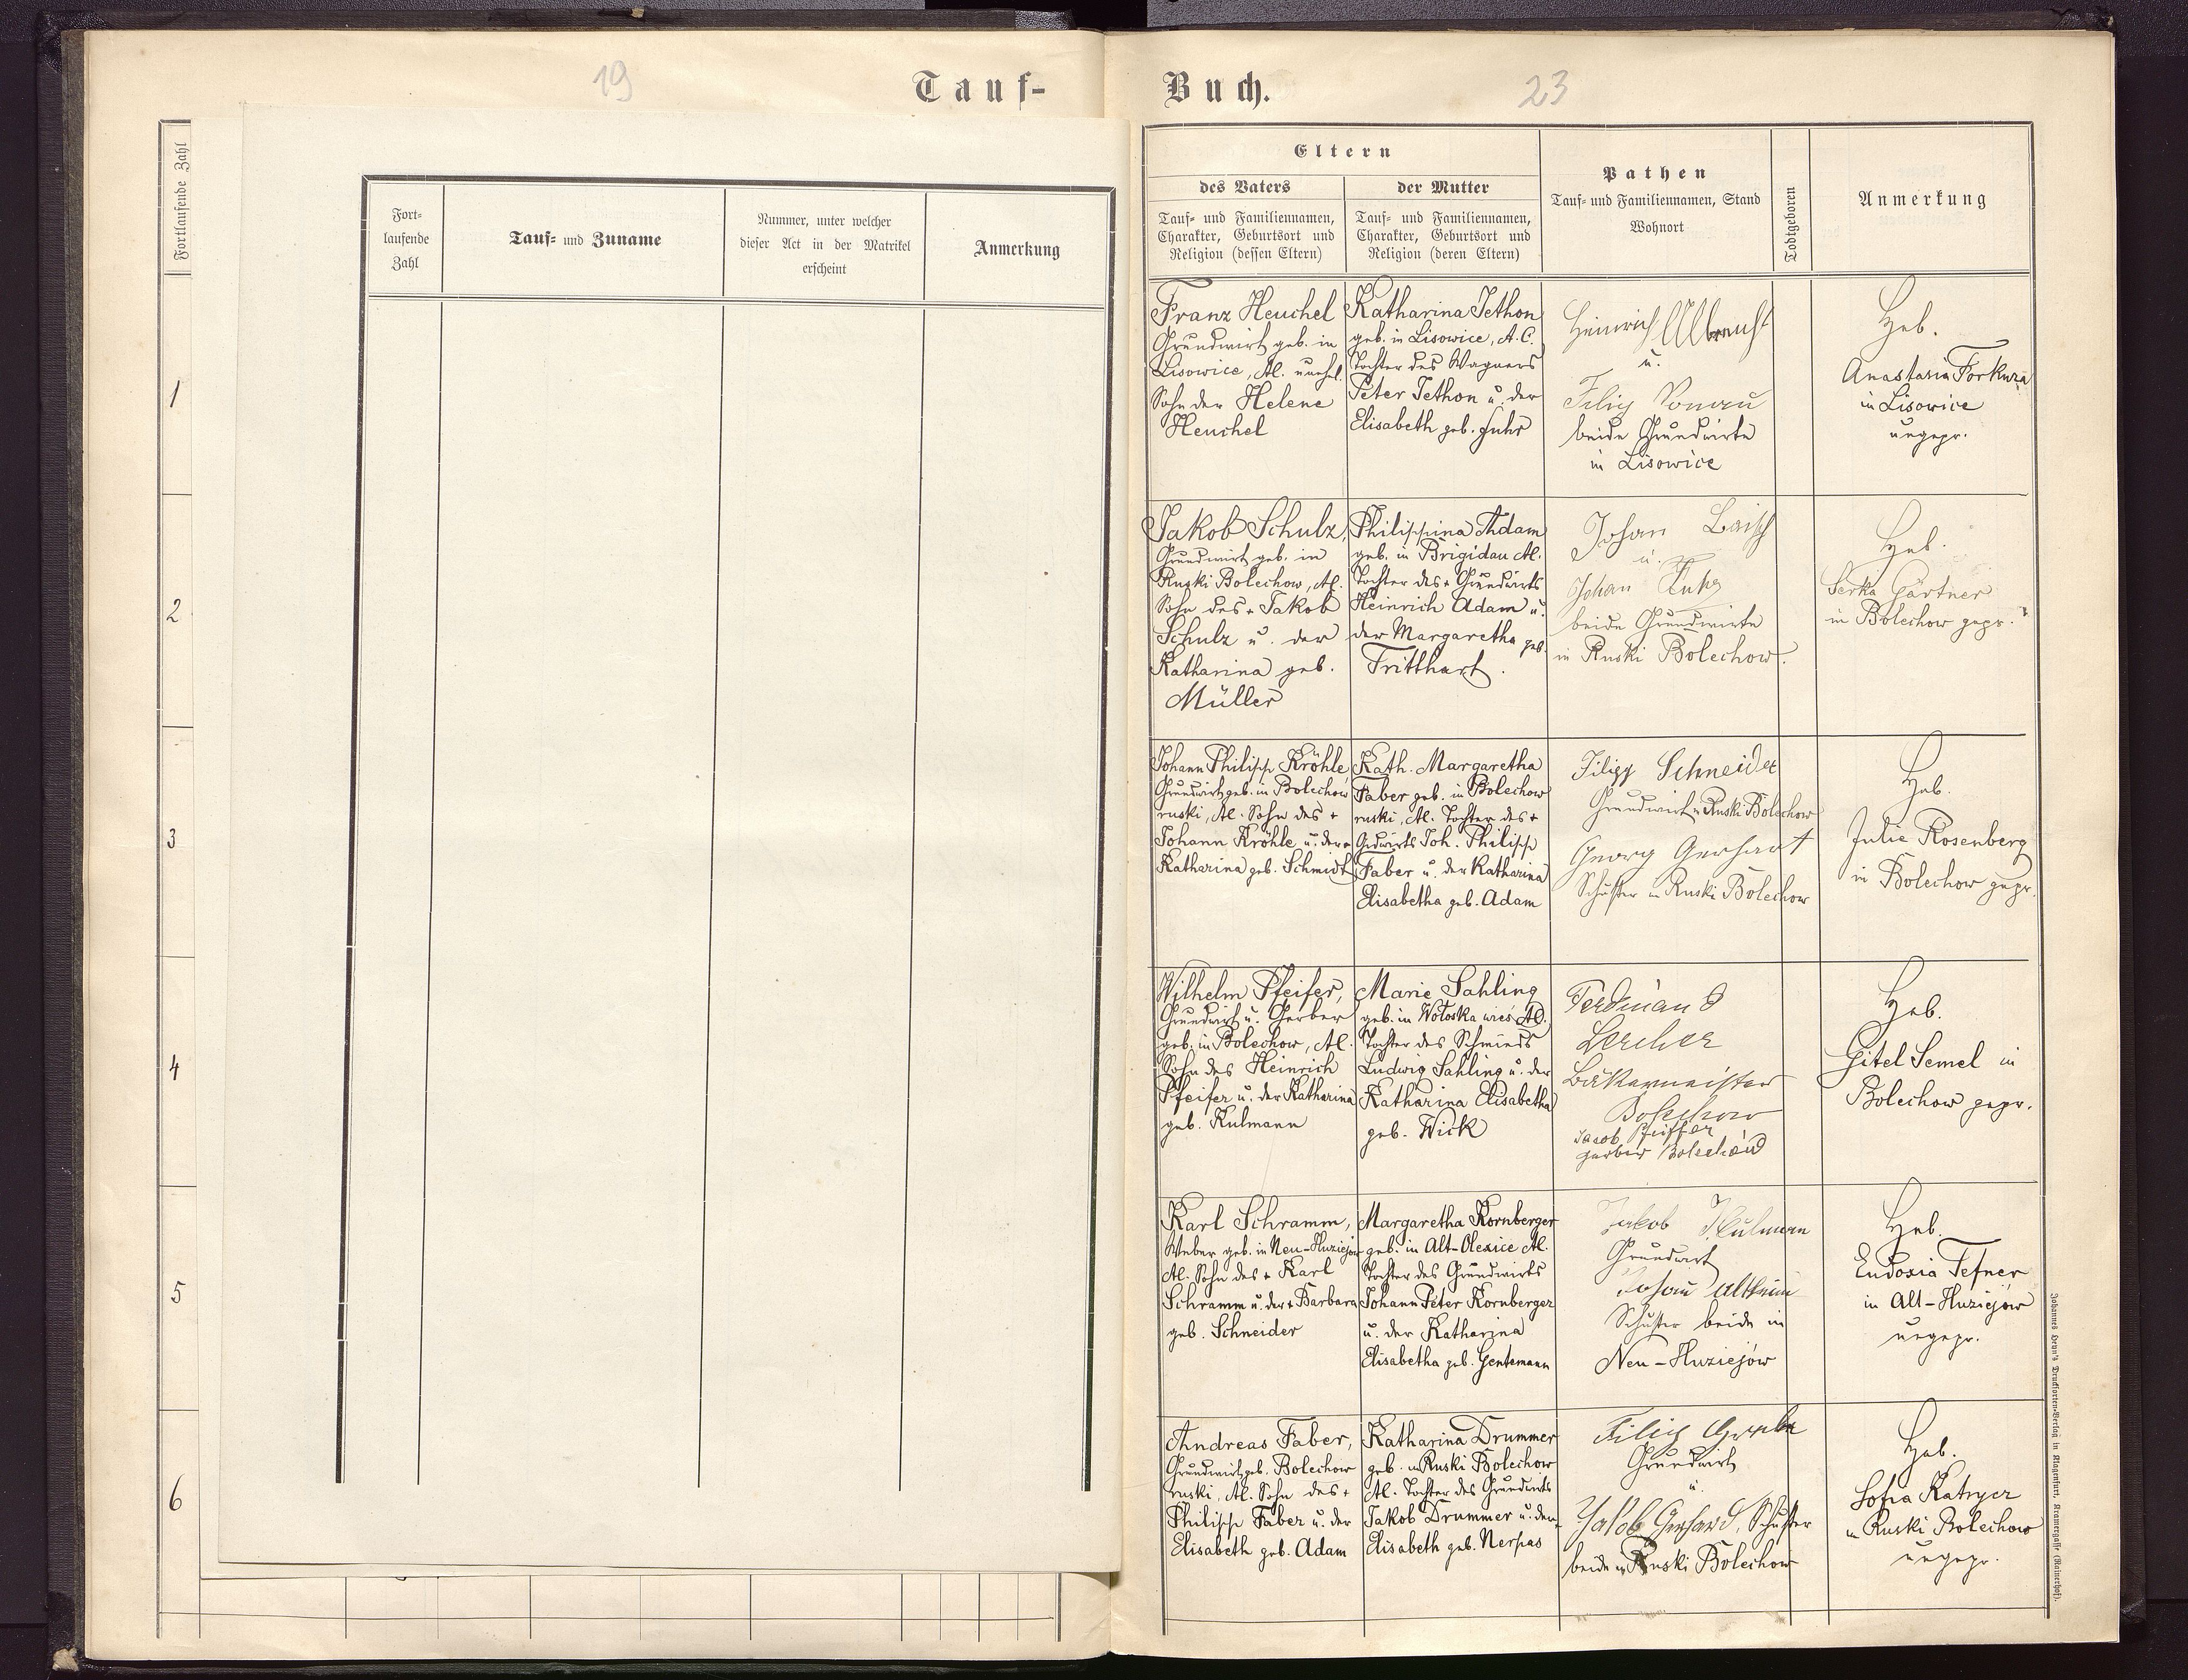 19
Tauf-
Buch.
23
Fortlaufende Zahl
1
2
3
4
5
6
Fort-
laufende
Zahl
Tauf- und Zuname
Nummer, unter welcher
dieser Act in der Matrikel
erscheint
Anmerkung
Eltern
des Vaters
Tauf- und Familiennamen,
Charakter, Geburtsort und
Religion (dessen Eltern)
der Mutter
Tauf- und Familiennamen,
Charakter, Geburtsort und
Religion (deren Eltern)
Pathen
Tauf- und Familiennamen, Stand
Wohnort
Todtgeboren
Anmerkung
Franz Heuchel
Grundwirt geb. in
Lisowice, AC. unehel.
Sohn der Helene
Heuchel
Katharina Jethon
geb. in Lisowice, A.C.
Tochter des Wagners
Peter Jethon u. der
Elisabeth geb. Fuhr
Heinrich
u.
Filip
beide Grundwirte
in Lisowice
Heb.
Anastasia Forkura
in Lisowice
ungepr.
Jakob Schulz,
Grundwirt geb. in
Ruski Bolechow, AC.
Sohn des + Jakob
Schulz u. der
Katharina geb.
Müller
Philippina Adam
geb. in Brigidau AC.
Tochter des + Grundwirts
Heinrich Adam u.
der Margaretha geb.
Tritthart.
Johan
u.
Johan
beide Grundwirte
in Ruski Bolechow.
Heb.
Serka Gärtner
in Bolechow gepr.
Johann Philipp Kröhle,
Grundwirt geb. in Bolechow
ruski, AC. Sohn des +
Johann Kröhle u. der +
Katharina geb. Schmidt
Kath. Margaretha
Faber geb. in Bolechow
ruski, AC. Tochter des +
Grdwirts Joh. Philipp
Faber u. der Katharina
Elisabetha geb. Adam
Filipp Schneider
Grundwirt in Ruski Bolechow
Georg Gerhart
Schuster in Ruski Bolechow
Heb.
Julie Rosenberg
in Bolechow gepr.
Wilhelm Pfeifer,
Grundwirt u. Gerber
geb. in Bolechow, AC.
Sohn des Heinrich
Pfeifer u. der Katharina
geb. Kulmann
Marie Sahling
geb. in Wołoska wieś AC.
Tochter des Schmieds
Ludwig Sahling u. der
Katharina Elisabetha
geb. Wick
Ferdinand
Lercher
Bäkermeister
Bolechow
Jacob Pfeiffer
gerber Bolechow
Heb.
Gitel Semel in
Bolechow gepr.
Karl Schramm,
Weber geb. in Neu-Huziejów
AC. Sohn des + Karl
Schramm u. der + Barbara
geb. Schneider
Margaretha Kornberger
geb. in Alt-Olexice AC.
Tochter des Grundwirts
Johann Peter Kornberger
u. der Katharina
Elisabetha geb. Gentemann
Jakob Kulman
Grundwirt
Schuster beide in
Neu-Huziejów
Heb.
Eudoxia Tefner
in Alt-Huziejów
ungepr.
Andreas Faber,
Grundwirt geb. Bolechow
ruski, AC. Sohn des +
Philipp Faber u. der
Elisabeth geb. Adam
Katharina Drummer
geb. in Ruski Bolechow
AC. Tochter des Grundwirts
Jakob Drummer u. der
Elisabeth geb. Nerpas
Filip
Grundwirt
u.
Jakob Gerhard, Schuster
beide in Ruski Bolechow
Heb.
Sofia Katrycz
in Ruski Bolechow
ungepr.
Johannes Heyn's Drucksorten-Verlag in Klagenfurt, Kramergasse (Rainerhof).